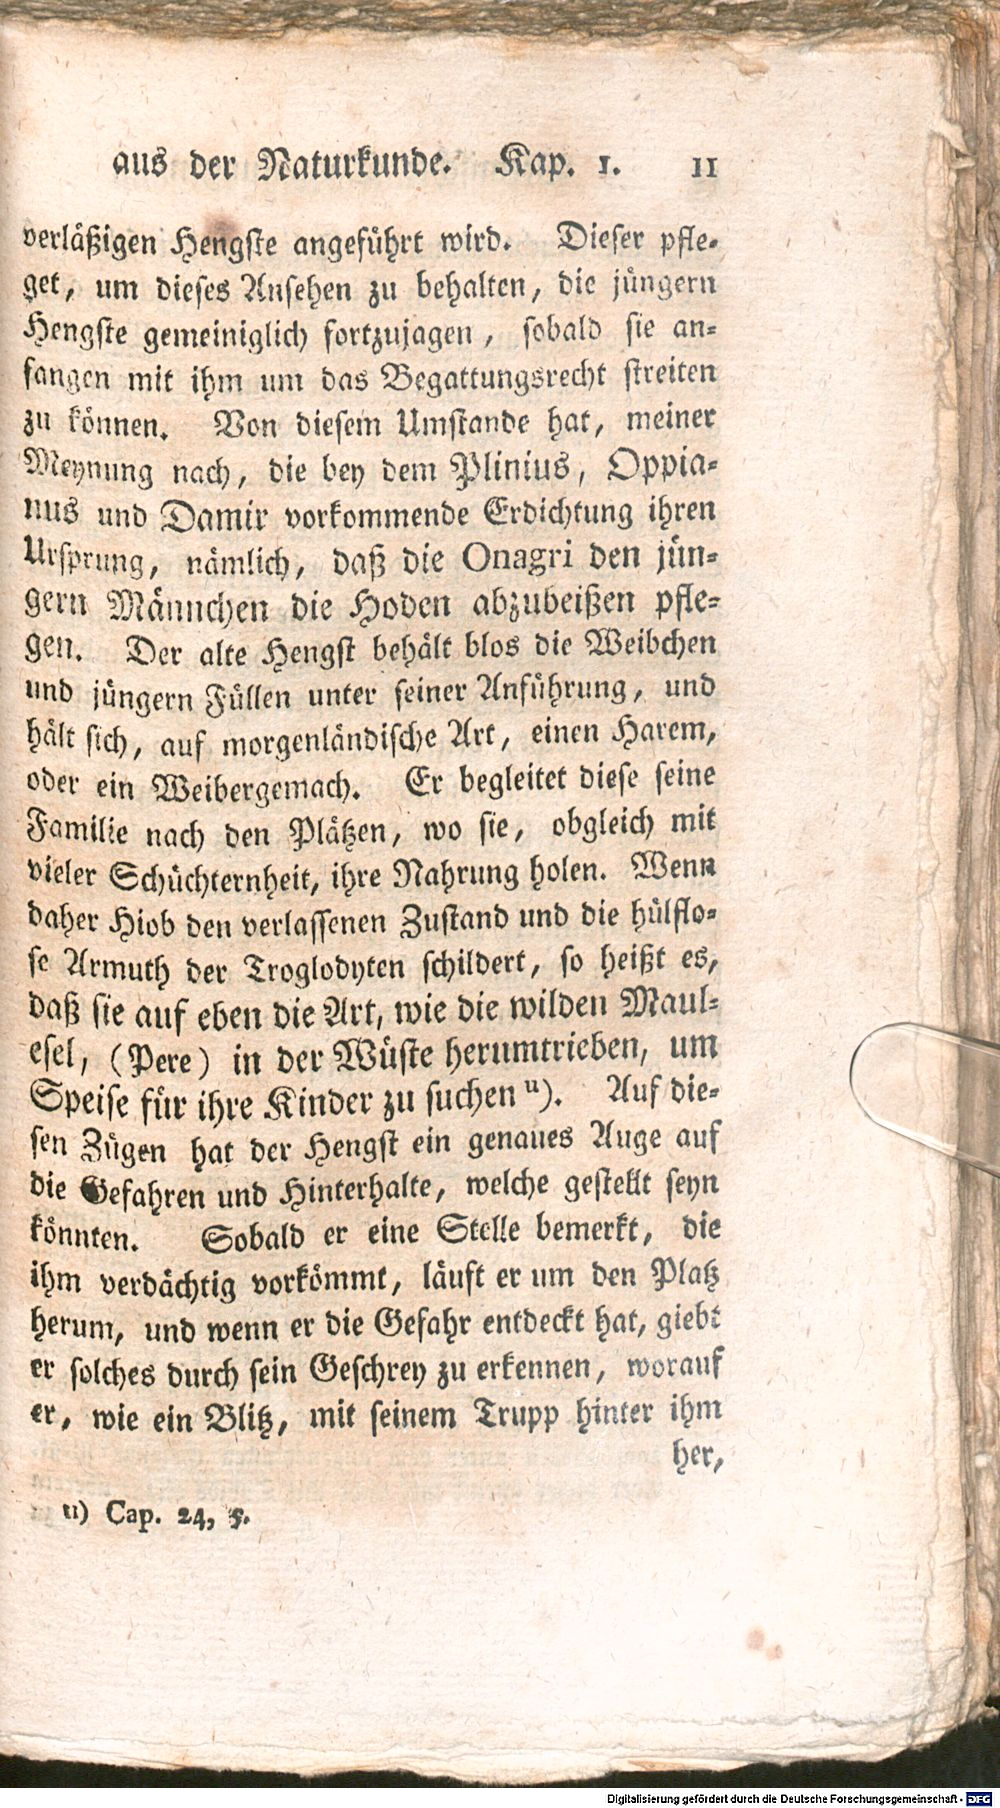 aus der Naturkunde. Kap. 1. 11
verläßigen Hengste angeführt wird. Dieser pfle-
get, um dieses Ansehen zu behalten, die jüngern
Hengste gemeiniglich fortzujagen, sobald sie an-
fangen mit ihm um das Begattungsrecht streiten
zu können. Von diesem Umstande hat, meiner
Meynung nach, die bey dem Plinius, Oppia-
nus und Damir vorkommende Erdichtung ihren
Ursprung, nämlich, daß die Onagri den jün-
gern Männchen die Hoden abzubeißen pfle-
gen. Der alte Hengst behält blos die Weibchen
und jüngern Füllen unter seiner Anführung, und
hält sich, auf morgenländische Art, einen Harem,
oder ein Weibergemach. Er begleitet diese seine
Familie nach den Plätzen, wo sie, obgleich mit
vieler Schüchternheit, ihre Nahrung holen. Wenn
daher Hiob den verlassenen Zustand und die hülflo-
se Armuth der Troglodyten schildert, so heißt es,
daß sie auf eben die Art, wie die wilden Maul-
esel, (Pere) in der Wüste herumtrieben, um
Speise für ihre Kinder zu suchen u). Auf die-
sen Zügen hat der Hengst ein genaues Auge auf
die Gefahren und Hinterhalte, welche gestellt seyn
könnten. Sobald er eine Stelle bemerkt, die
ihm verdächtig vorkömmt, läuft er um den Platz
herum, und wenn er die Gefahr entdeckt hat, giebt
er solches durch sein Geschrey zu erkennen, worauf
er, wie ein Blitz, mit seinem Trupp hinter ihm
her,
u) Cap. 24, 5.
Digitalisierung gefördert durch die Deutsche Forschungsgemeinschaft - DFG